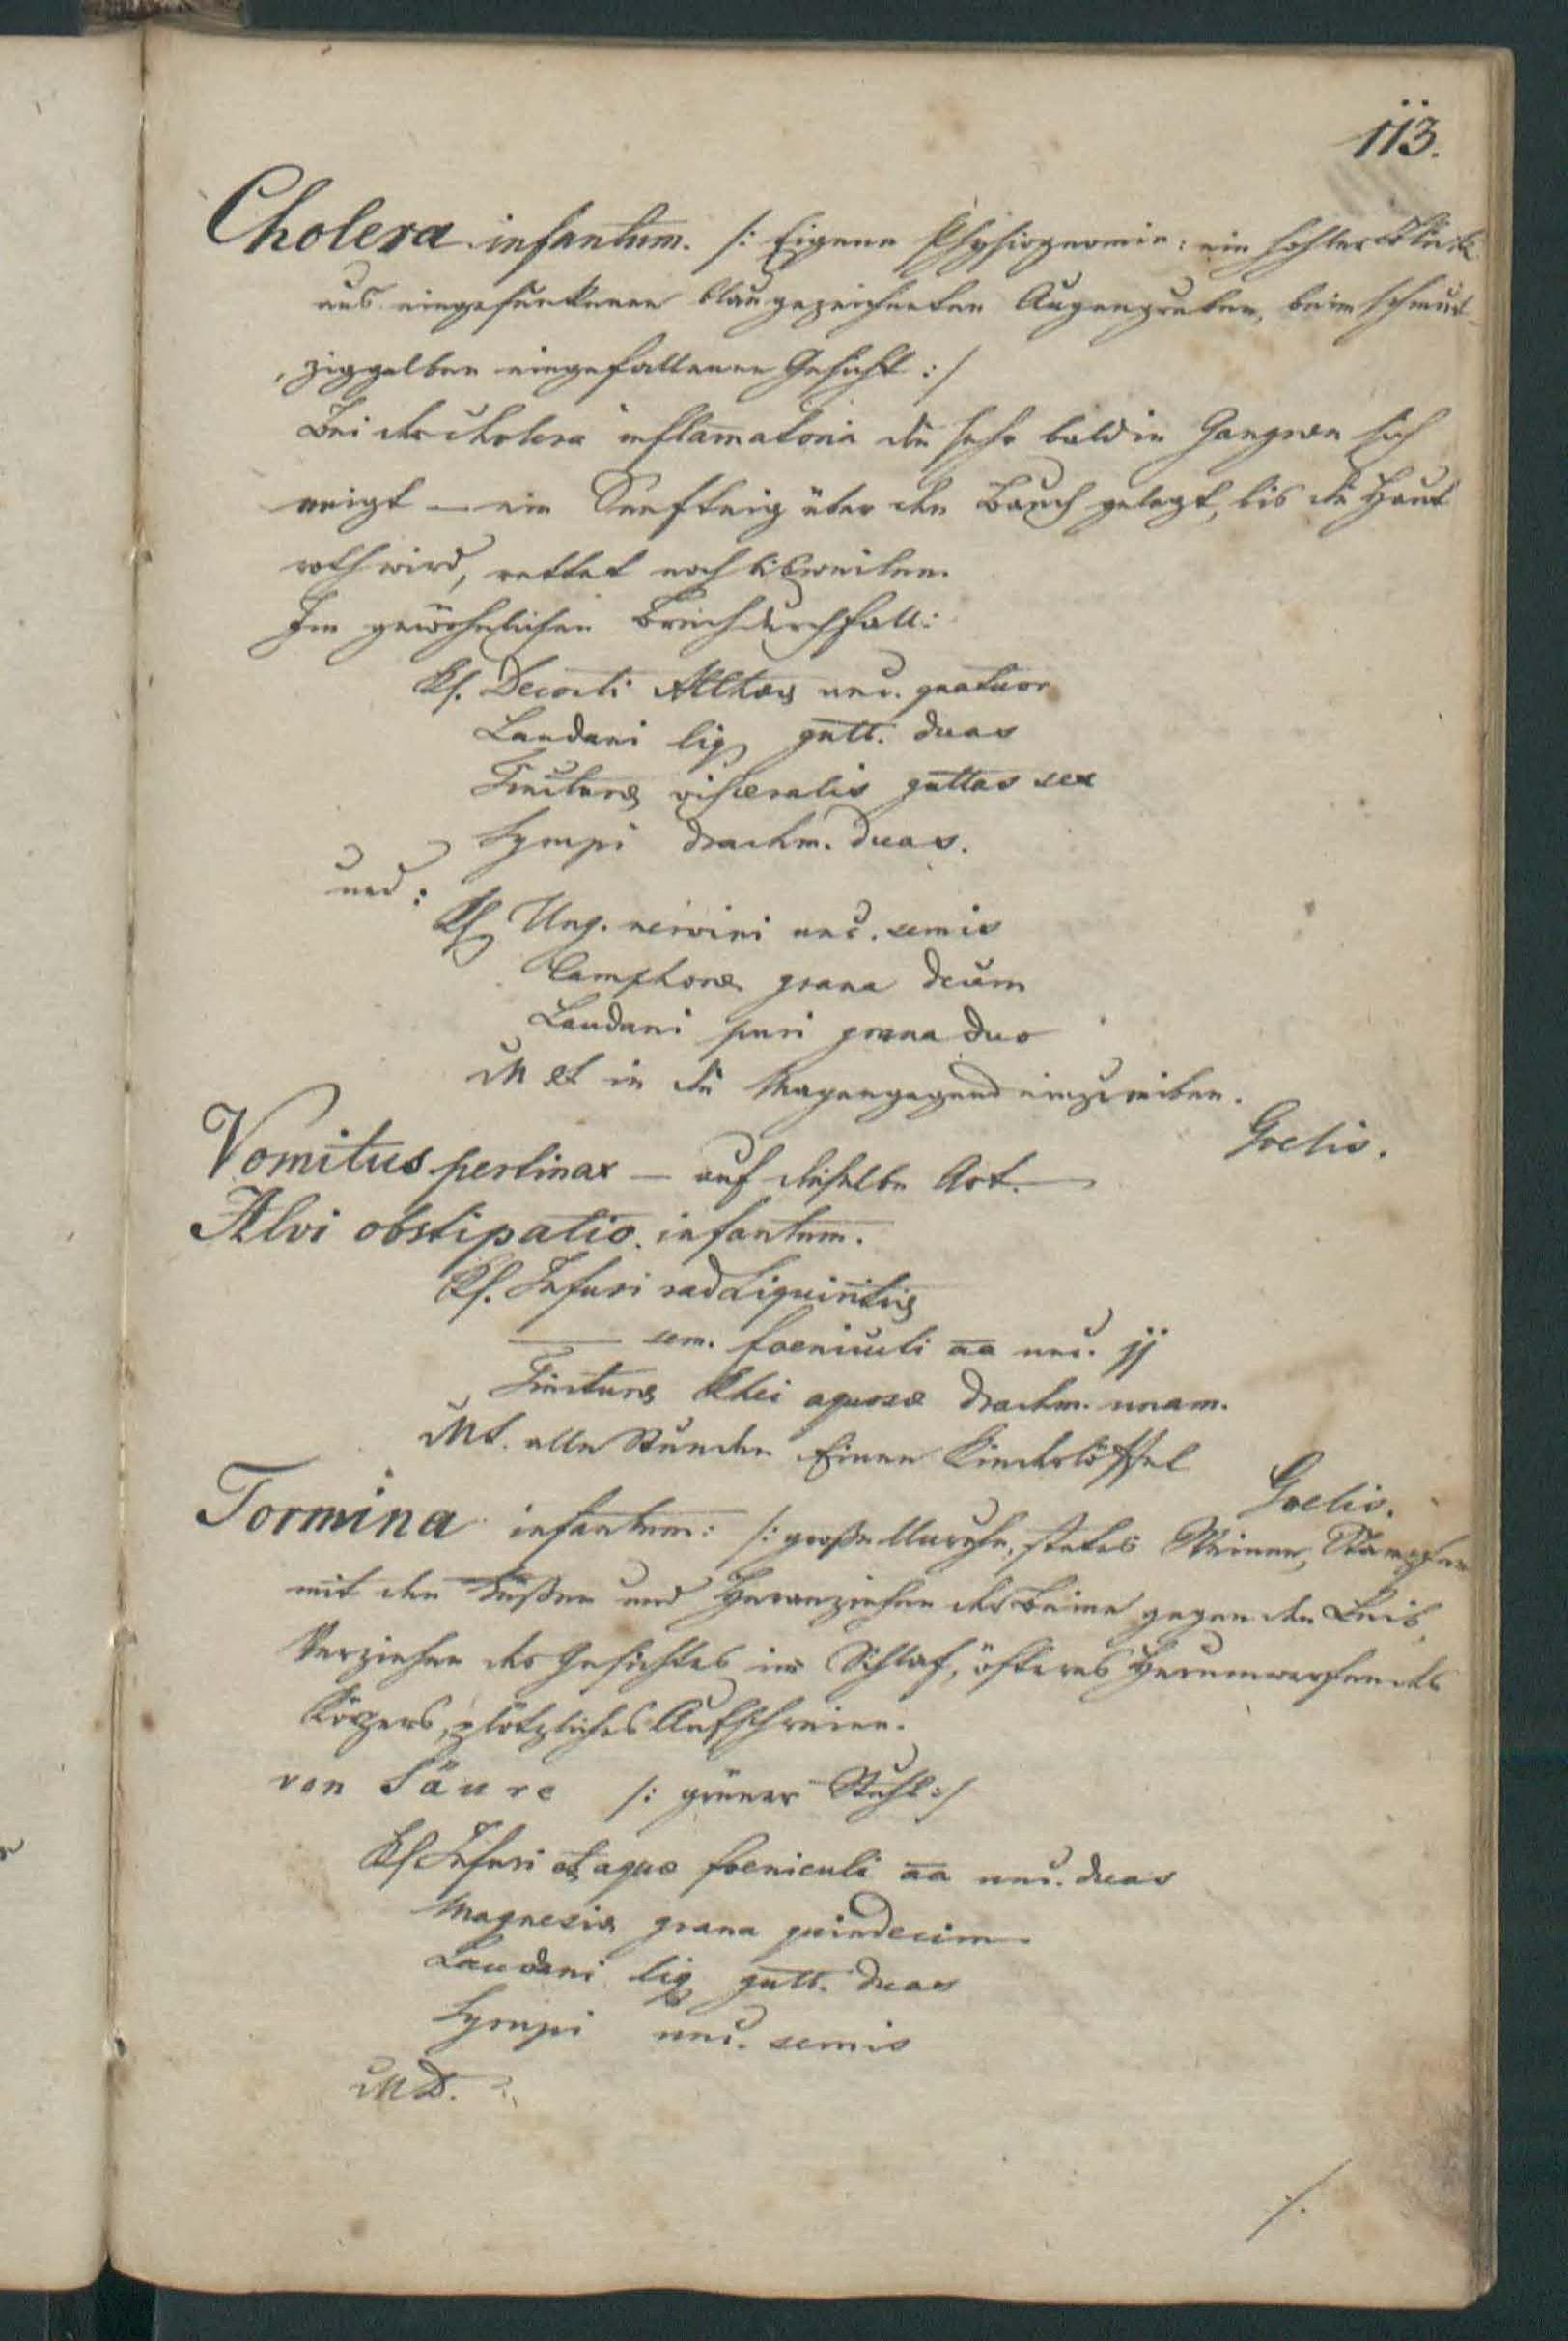 113.
Cholera infantum. /: Eigene Physiognomie: ein hohler Blick
aus eingesunkenen blaugezeichneten Augengruben, beim schmut-
ziggelben eingefallenen Gesicht :/
Bei der Cholera inflam̄atoria die sehr bald in Gangraen sich
neigt — ein Senfteig über den Bauch gelegt, bis die Haut
roth wird, rettet noch bisweilen.
Im gewöhnlichen Brechdurchfall:
Rp. Decocti Altheae unc. quatuor
Laudani liq. gutt. duas
Tincturae visceralis guttas sex
Syrupi drachm. duas.
und:
Rp Ung. nervini unc. semis
Camphorae grana decem
Laudani puri grana duo
M et in die Magengegend einzureiben.
Goelis.
Vomitus pertinax — auf dieselbe Art. —
Alvi obstipatio infantum.
Rp. Infusi rad Liquiritiae
— sem. foeniculi aa unc. jj
Tincturae Rhei aquosae drachm. unam.
MS. alle Stunden Einen Kinderlöffel
Goelis.
Tormina infantum: /: große Unruhe, stetes Weinen, Stampfen
mit den Füßen und Heranziehen der Beine gegen den Leib,
Verziehen des Gesichtes im Schlaf, öfteres Herumwerfen des
Körpers, plötzliches Aufschreien.
von Säure /: grüner Stuhl :/
Rp Infusi et aquae foeniculi aa unc. duas
Magnesiae grana quindecim
Laudani liq gutt. duas
Syrupi unc. semis
MD.
/.